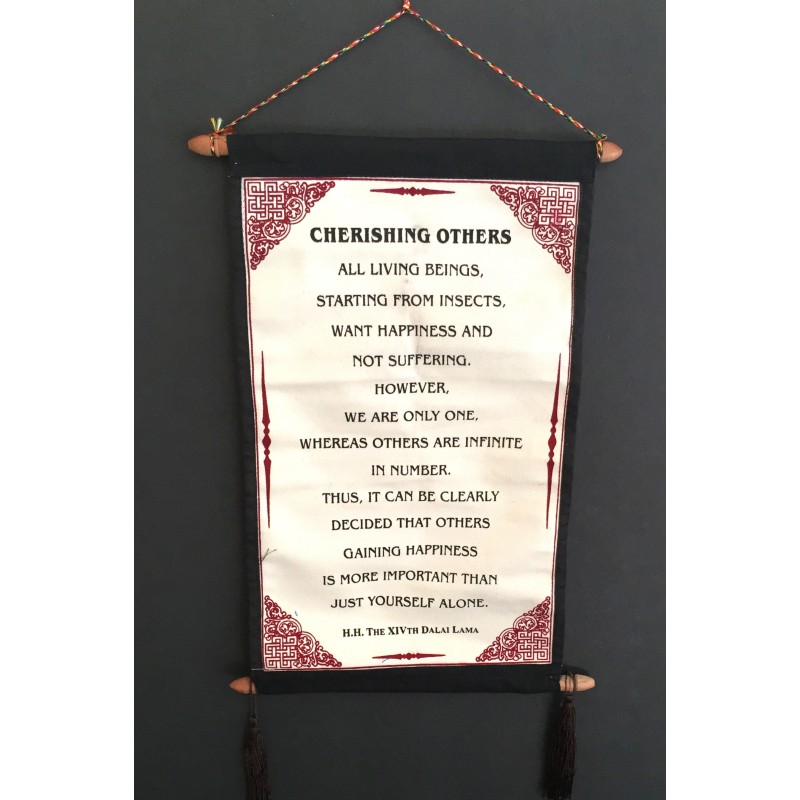 CHERISHING OTHERS
ALL LIVING BEINGS,
STARTING FROM INSECTS,
WANT HAPPINESS AND
NOT SUFFERING.
HOWEVER,
WE ARE ONLY ONE,
WHEREAS OTHERS ARE INFINITE
IN NUMBER.
THUS, IT CAN BE CLEARLY
DECIDED THAT OTHERS
GAINING HAPPINESS
IS MORE IMPORTANT THAN
JUST YOURSELF ALONE.
H.H. THE XIVTH DALAI LAMA